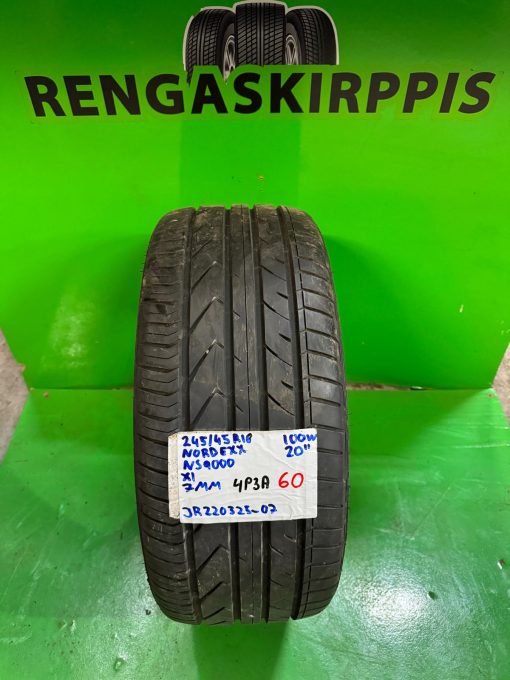 RENGASKIRPPIS
245/45R18 100W
NORDEXX 20"
NS9000
X1
7MM 4P3A 60
JR220325-07